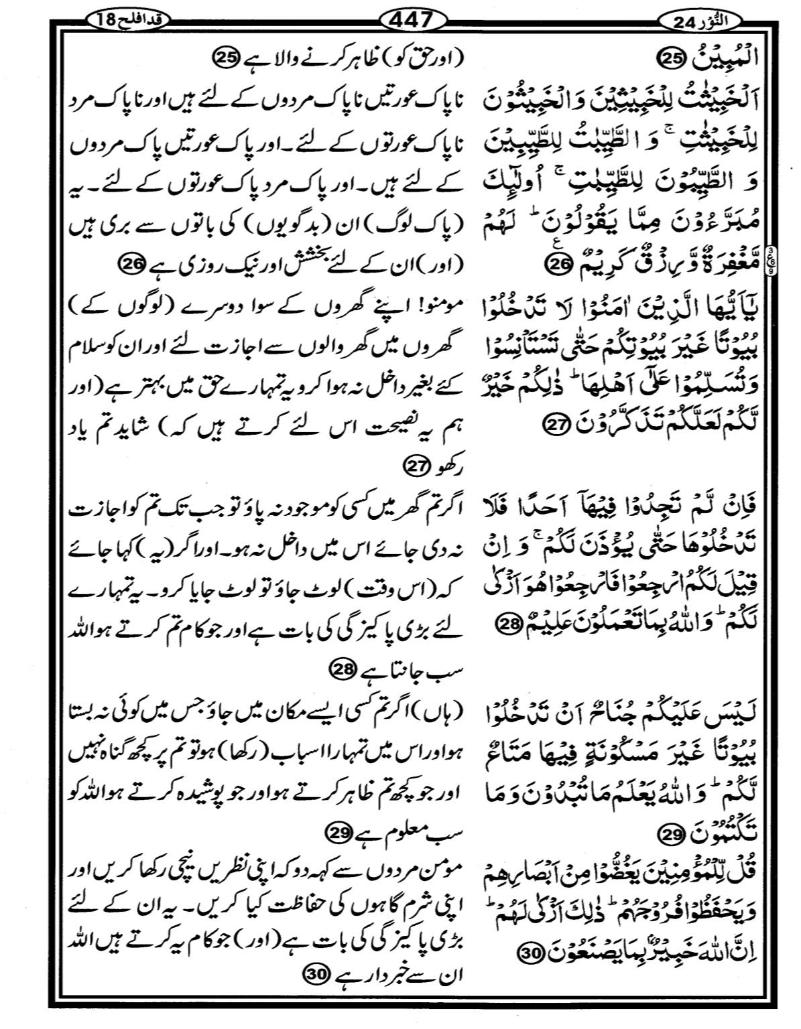 النُّوْر 24
447
قد افلح 18
الْمُبِيْنُ 25
اَلْخَبِيْثٰتُ لِلْخَبِيْثِيْنَ وَالْخَبِيْثُوْنَ
لِلْخَبِيْثٰتِ ۚ وَ الطَّيِّبٰتُ لِلطَّيِّبِيْنَ
وَ الطَّيِّبُوْنَ لِلطَّيِّبٰتِ ۚ اُولٰٓئِكَ
مُبَرَّءُوْنَ مِمَّا يَقُوْلُوْنَ ؕ لَهُمْ
مَّغْفِرَةٌ وَّ رِزْقٌ كَرِيْمٌ 26 ع
يٰۤاَيُّهَا الَّذِيْنَ اٰمَنُوْا لَا تَدْخُلُوْا
بُيُوْتًا غَيْرَ بُيُوْتِكُمْ حَتّٰى تَسْتَاْنِسُوْا
وَ تُسَلِّمُوْا عَلٰۤى اَهْلِهَا ؕ ذٰلِكُمْ خَيْرٌ
لَّكُمْ لَعَلَّكُمْ تَذَكَّرُوْنَ 27
فَاِنْ لَّمْ تَجِدُوْا فِيْهَاۤ اَحَدًا فَلَا
تَدْخُلُوْهَا حَتّٰى يُؤْذَنَ لَكُمْ ۚ وَ اِنْ
قِيْلَ لَكُمُ ارْجِعُوْا فَارْجِعُوْا هُوَ اَزْكٰى
لَكُمْ ؕ وَ اللّٰهُ بِمَا تَعْمَلُوْنَ عَلِيْمٌ 28
لَيْسَ عَلَيْكُمْ جُنَاحٌ اَنْ تَدْخُلُوْا
بُيُوْتًا غَيْرَ مَسْكُوْنَةٍ فِيْهَا مَتَاعٌ
لَّكُمْ ؕ وَ اللّٰهُ يَعْلَمُ مَا تُبْدُوْنَ وَ مَا
تَكْتُمُوْنَ 29
قُلْ لِّلْمُؤْمِنِيْنَ يَغُضُّوْا مِنْ اَبْصَارِهِمْ
وَ يَحْفَظُوْا فُرُوْجَهُمْ ؕ ذٰلِكَ اَزْكٰى لَهُمْ ؕ
اِنَّ اللّٰهَ خَبِيْرٌۢ بِمَا يَصْنَعُوْنَ 30
(اور حق کو) ظاہر کرنے والا ہے 25
ناپاک عورتیں ناپاک مردوں کے لئے ہیں اور ناپاک مرد
ناپاک عورتوں کے لئے۔ اور پاک عورتیں پاک مردوں
کے لئے ہیں۔ اور پاک مرد پاک عورتوں کے لئے۔ یہ
(پاک لوگ) ان (بدگویوں) کی باتوں سے بری ہیں
(اور) ان کے لئے بخشش اور نیک روزی ہے 26
مومنو! اپنے گھروں کے سوا دوسرے (لوگوں کے)
گھروں میں گھر والوں سے اجازت لئے اور ان کو سلام
کئے بغیر داخل نہ ہوا کرو یہ تمہارے حق میں بہتر ہے (اور
ہم یہ نصیحت اس لئے کرتے ہیں کہ) شاید تم یاد
رکھو 27
اگر تم گھر میں کسی کو موجود نہ پاؤ تو جب تک تم کو اجازت
نہ دی جائے اس میں داخل نہ ہو۔ اور اگر (یہ) کہا جائے
کہ (اس وقت) لوٹ جاؤ تو لوٹ جایا کرو۔ یہ تمہارے
لئے بڑی پاکیزگی کی بات ہے اور جو کام تم کرتے ہو اللہ
سب جانتا ہے 28
(ہاں) اگر تم کسی ایسے مکان میں جاؤ جس میں کوئی نہ بستا
ہو اور اس میں تمہارا اسباب (رکھا) ہو تو تم پر کچھ گناہ نہیں
اور جو کچھ تم ظاہر کرتے ہو اور جو پوشیدہ کرتے ہو اللہ کو
سب معلوم ہے 29
مومن مردوں سے کہہ دو کہ اپنی نظریں نیچی رکھا کریں اور
اپنی شرم گاہوں کی حفاظت کیا کریں۔ یہ ان کے لئے
بڑی پاکیزگی کی بات ہے (اور) جو کام یہ کرتے ہیں اللہ
ان سے خبردار ہے 30